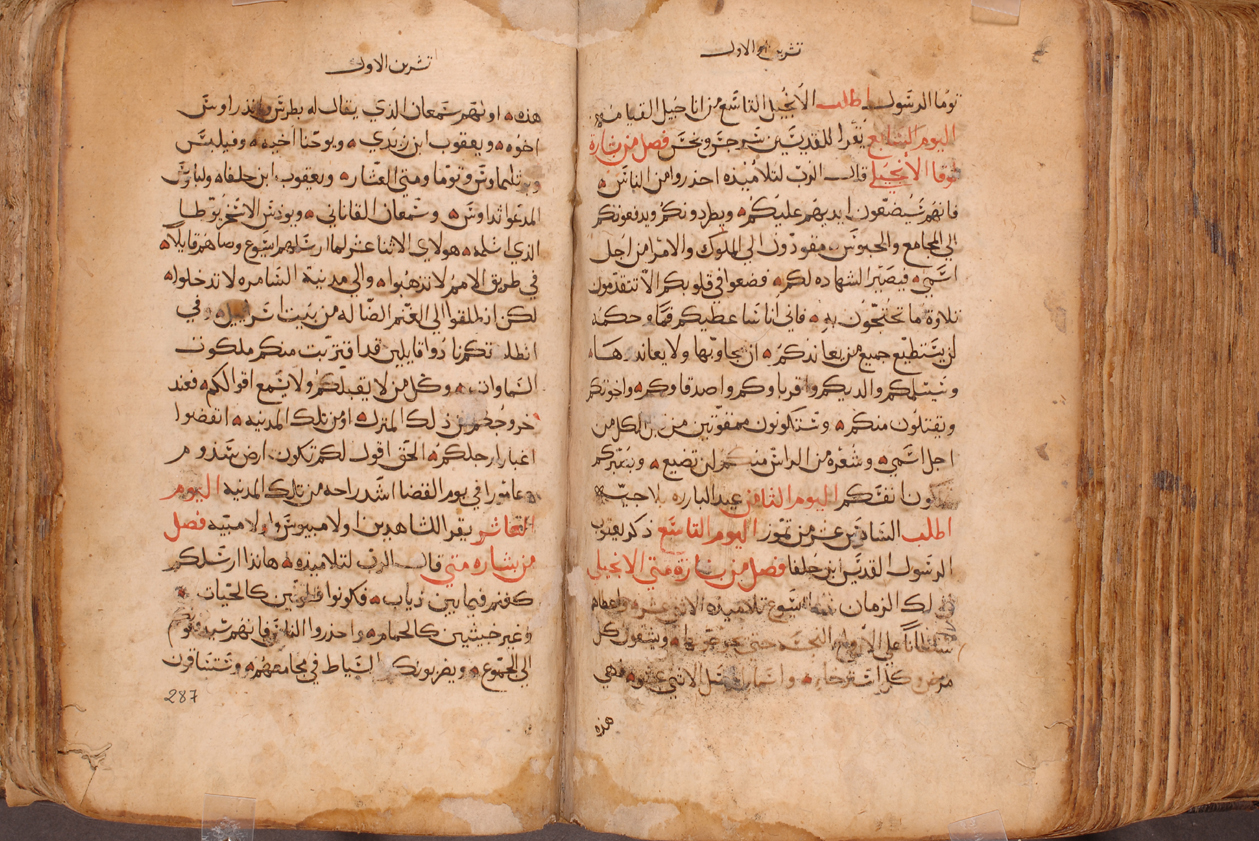 تشرين الاول
توما الرسول اطلب الانجيل التاسع من اناجيل القيامه
اليوم السابع يقرا للقديسين سرجس وبخس فصل من بشارة
لوقا الانجيلي قال الرب لتلاميذه احذروا من الناس
فانهم سيضعون ايديهم عليكم ويطردونكم ويدفعونكم
الى المجامع والحبوس مقودون الى الملوك والامرا من اجل
اسمي فيصير الشهاده لكم فضعوا في قلوبكم الا تتقدمون
تلاوة ما تحتجون به فاني انا ساعطيكم فما وحكمه
لن يستطيع جميع من يعاندكم ان يجاوبها ولا يعاندها
وسيسلمكم والديكم واقرباوكم واصدقاوكم واخوتكم
ويقتلون منكم وستكونون ممقوتين من الكل من
اجل اسمي وشعره من الراس منكم لن تضيع وبصبركم
انفسكم اليوم الثامن عيد الباره بلاجيه
اطلب السادس عشر من تموز اليوم التاسع ذكر يعقوب
الرسول القديس ابن حلفا فصل من بشارة متى الانجيلي
ذلك الزمان يسوع تلاميذه الاثني عشر واعطاهم
سلطانا على الارواح النجسه حتى يخرجوها ويشفون كل
مرض وكل استرخاء واسماء الرسل الاثني عشر فهي
هذه
تشرين الاول
هذه اولهم سمعان الذي يقال له بطرس واندراوس
اخوه ويعقوب ابن زبدي ويوحنا اخيه وفيلبس
وبرتلماوس وتوما ومتى العشار ويعقوب ابن حلفاه ولباوس
المدعو تداوس وسمعان القاناني ويودس الاسخريوطي
الذي اسلمه هولاي الاثنا عشر لما ارسلهم يسوع وصاهم قايلا
في طريق الامم لا تذهبوا والى مدنية السامره لا تدخلوا
لكن انطلقوا الى الغنم الضاله من بيت اسراييل وفي
انطلاقكم نادوا قايلين قد اقتربت منكم ملكوت
السماوات وكل من لا يقبلكم ولا يسمع اقوالكم فعند
خروجكم من ذلك المنزل او من تلك المدنيه انفضوا
غبار ارجلكم الحق اقول لكم تكون ارض سدوم
وعامورا في يوم القضا اشد راحه من تلك المدنيه اليوم
العاشر يقرا للشاهدين اولامبيوس واولامبيه فصل
من بشاره متى قال الرب لتلاميذه هانذا ارسلكم
كغنم فيما بين ذياب فكونوا فطنين كالحيات
وغير خبيثين كالحمام واحذروا الناس فانهم سيدفعونكم
الى الجموع ويضربونكم السياط في مجامعهم وستساقون
287